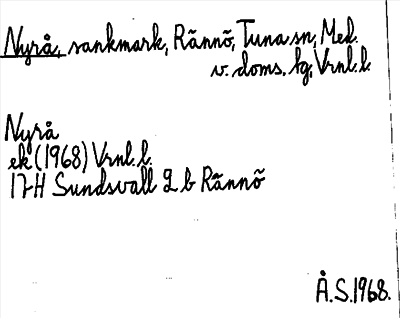 Nyrå, sankmark, Rännö, Tuna sn, Med.
v. doms. fg, Vrnl. l.
Nyrå
ek (1968) Vrnl. l.
17H Sundsvall 2 b Rännö
Å.S. 1968.